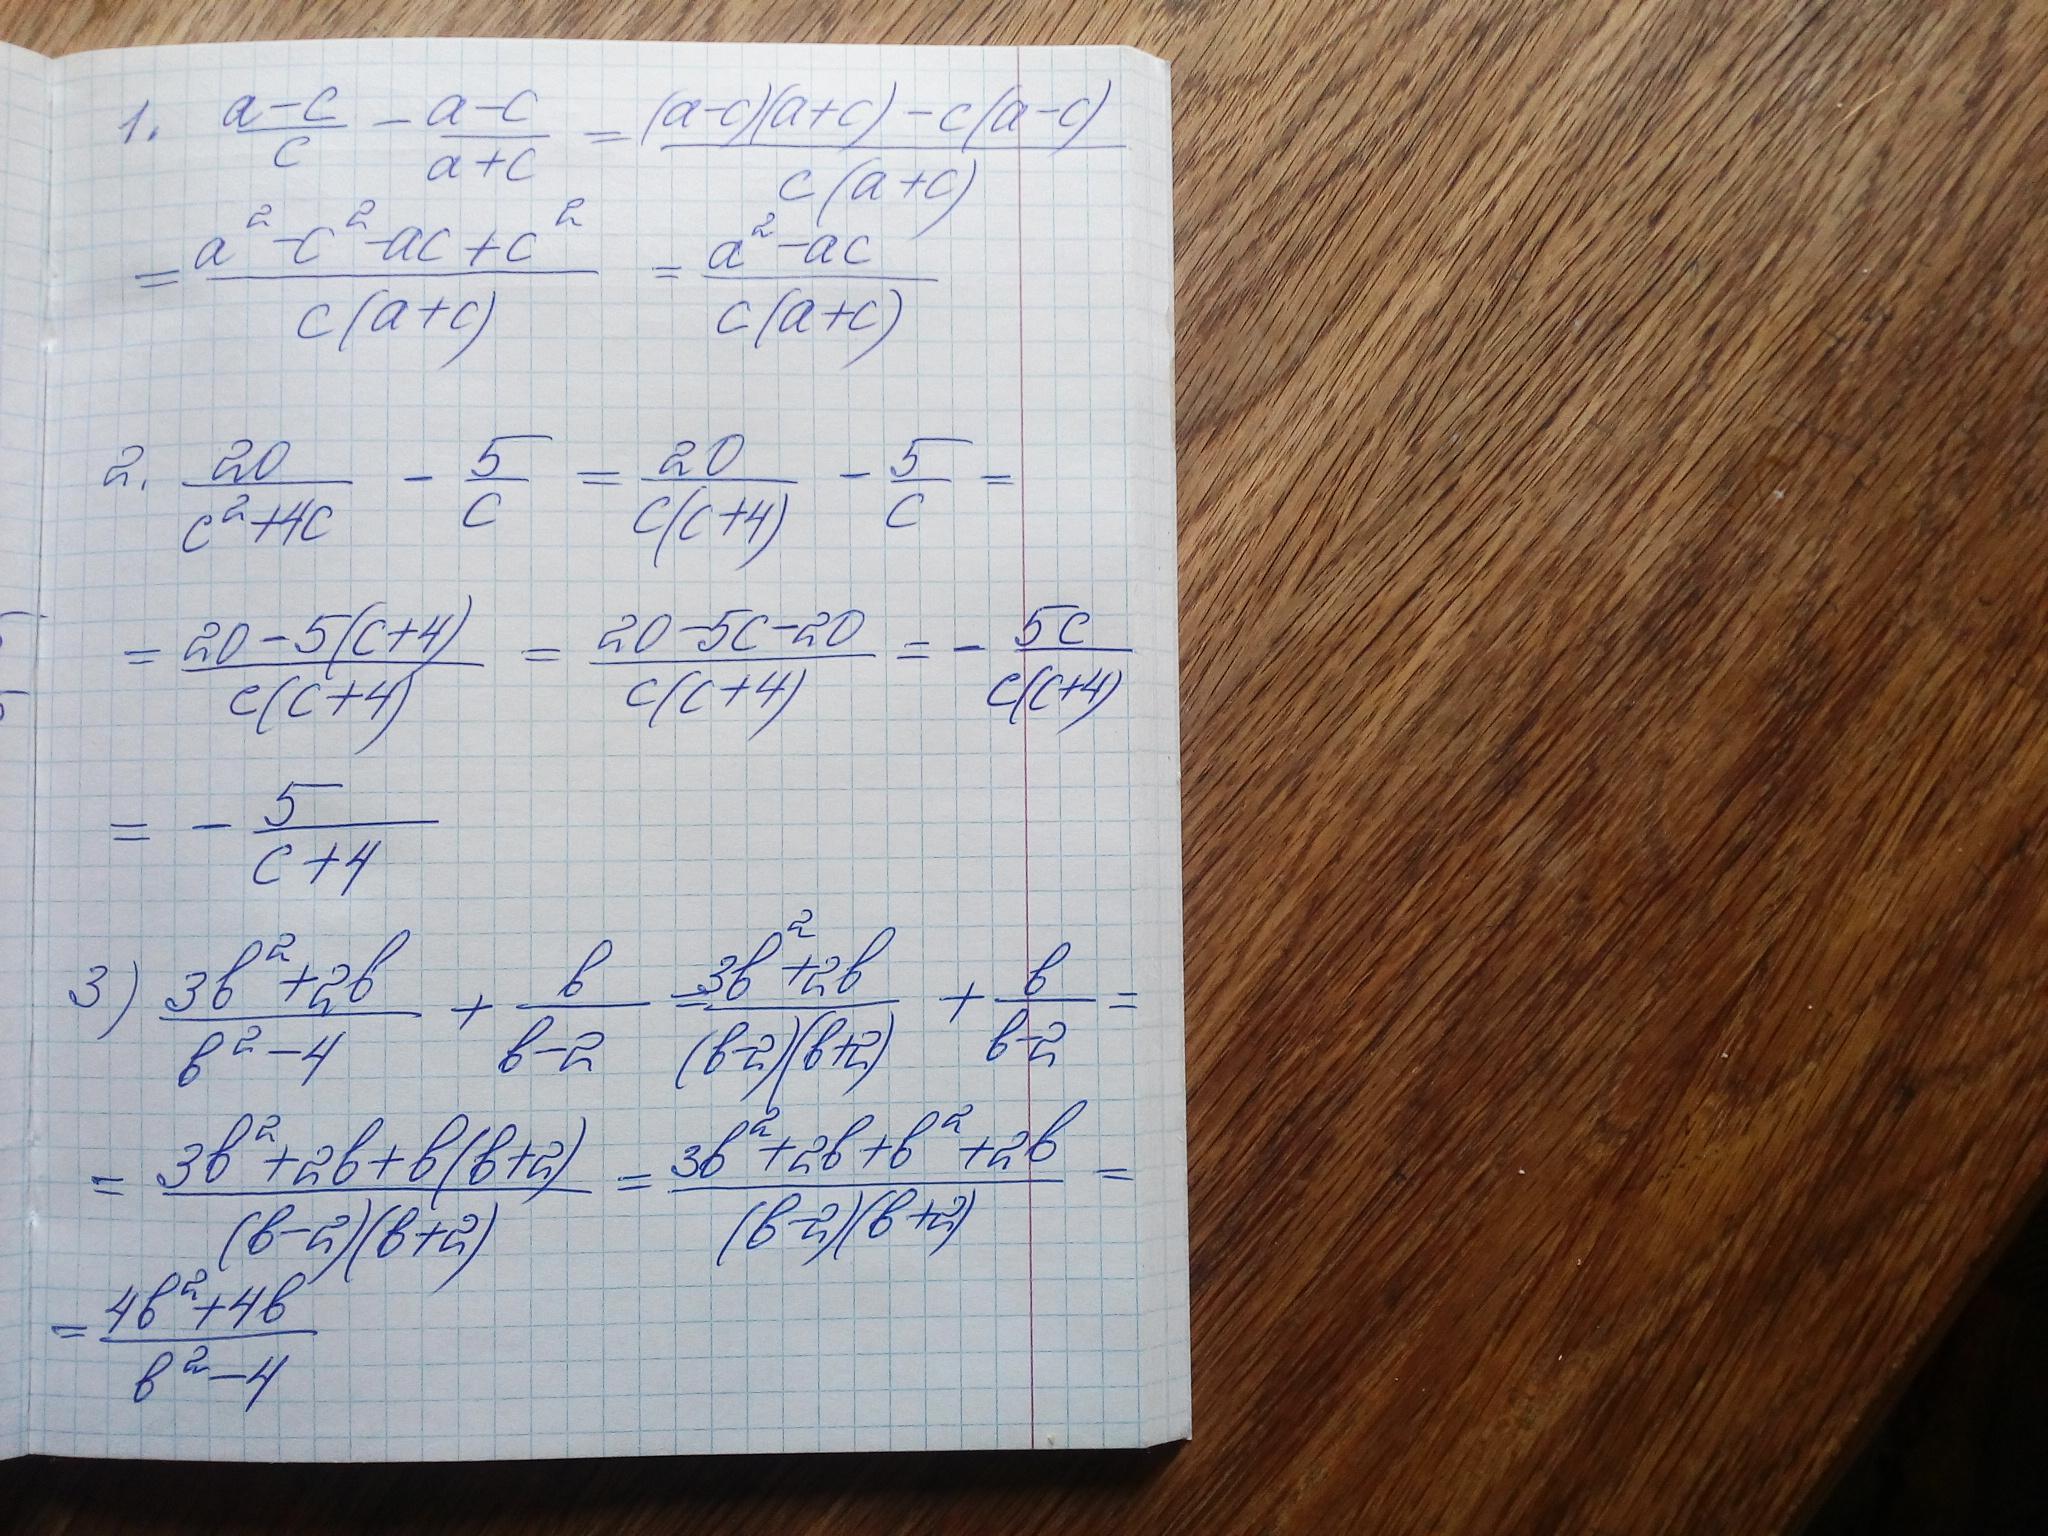 1. (a-c)/c - (a-c)/(a+c) = ((a-c)(a+c) - c(a-c))/(c(a+c))
= (a²-c²-ac+c²)/(c(a+c)) = (a²-ac)/(c(a+c))
2. 20/(c²+4c) - 5/c = 20/(c(c+4)) - 5/c =
= (20-5(c+4))/(c(c+4)) = (20-5c-20)/(c(c+4)) = - 5c/(c(c+4))
= - 5/(c+4)
3) (3b²+2b)/(b²-4) + b/(b-2) = (3b²+2b)/((b-2)(b+2)) + b/(b-2) =
= (3b²+2b+b(b+2))/((b-2)(b+2)) = (3b²+2b+b²+2b)/((b-2)(b+2)) =
= (4b²+4b)/(b²-4)